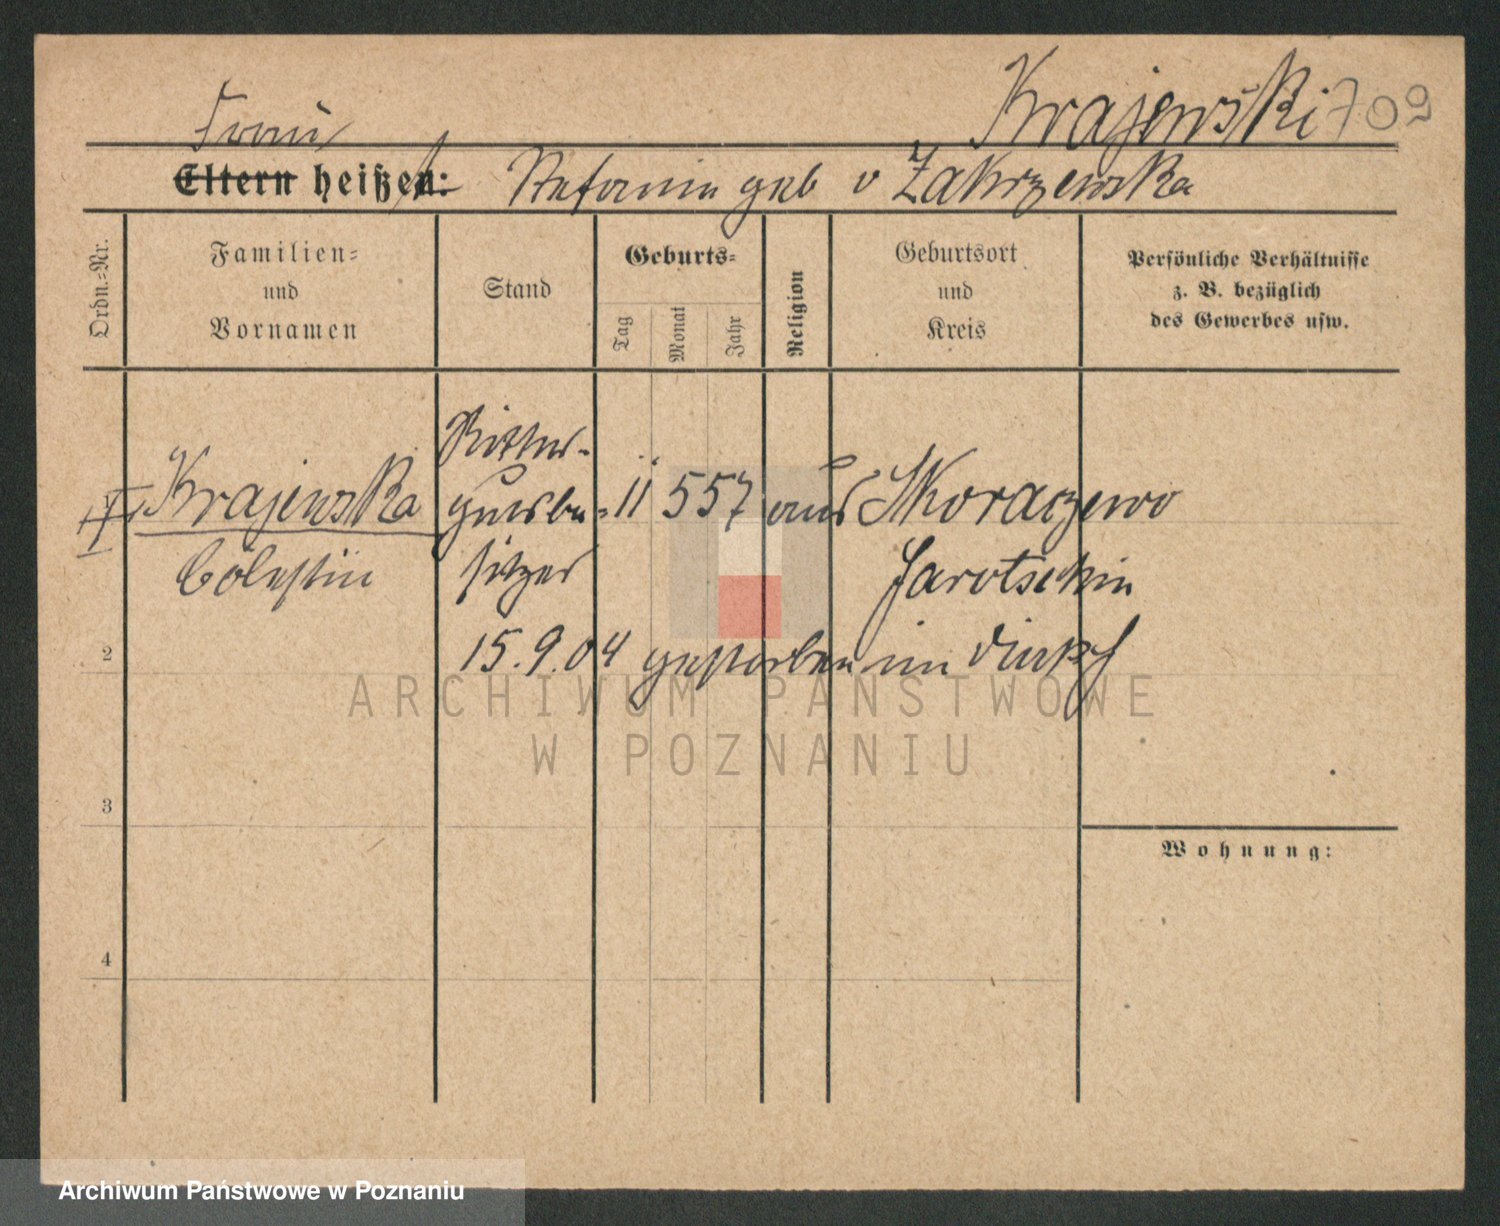 Krajewski 709
Frau
Eltern heißet: Stefanie geb v Zakrzewska
Ordn.=Nr.
Familien=
und
Vornamen
Stand
Geburts=
Tag
Monat
Jahr
Religion
Geburtsort
und
Kreis
Persönliche Verhältnisse
z. B. bezüglich
des Gewerbes usw.
Krajewska
Cölestin
Ritter-
gutsbe=
sitzer
11 5 57 aus Skoraczewo
Jarotschin
15.9.04 gestorben im
2
3
4
Wohnung:
ARCHIWUM PAŃSTWOWE
W POZNANIU
Archiwum Państwowe w Poznaniu